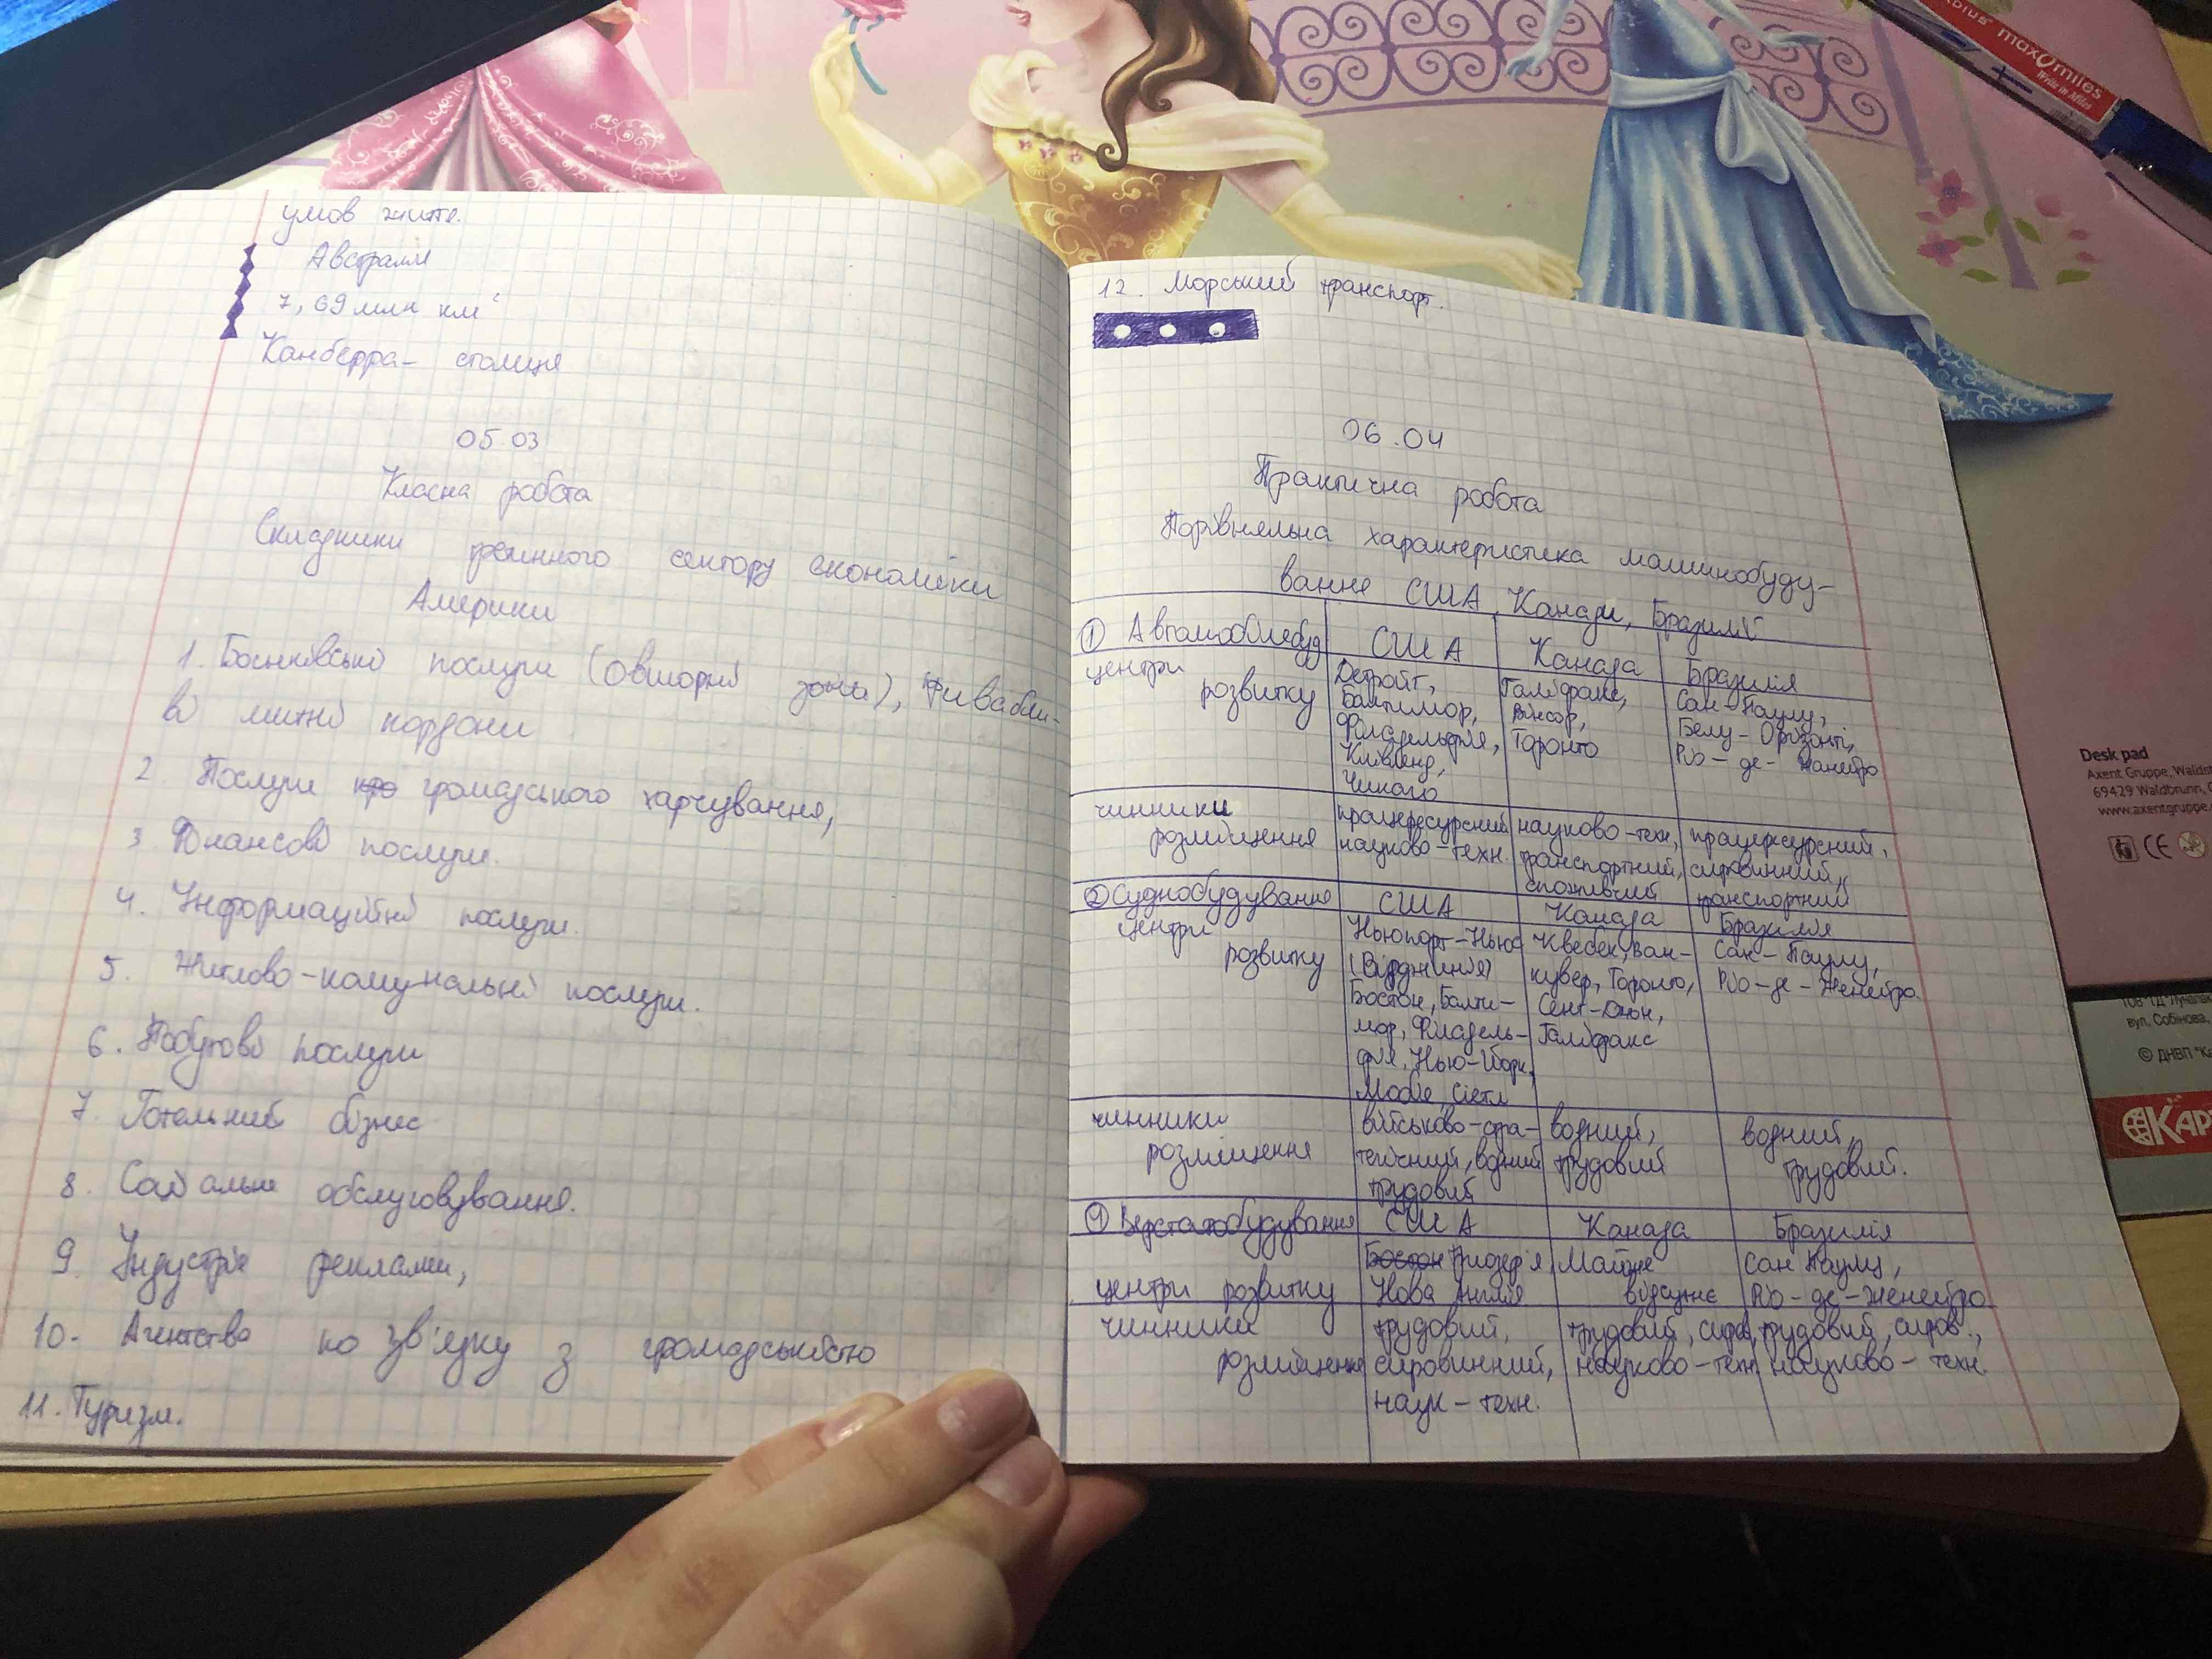 умов життя.
Австралія
7,69 млн км²
Канберра- столиця
05.03
Класна робота
Складники третинного сектору економіки
Америки
1. Банківські послуги (офшорні зона), привабли-
ві митні кордони
2. Послуги громадського харчування,
3 Фінансові послуги.
4. Інформаційні послуги.
5. Житлово-комунальні послуги.
6. Побутові послуги
7. Готельний бізнес
8. Соціальне обслуговування.
9. Індустрія реклами,
10. Агентства по зв'язку з громадськістю
11. Туризм.
12. Морський транспорт.
06.04
Практична робота
Порівняльна характеристика машинобуду-
вання США, Канади, Бразилії
① Автомобілебуд США Канада Бразилія
центри розвитку
Детройт, Балтимор, Філадельфія, Клівленд, Чикаго
Галіфакс, Вінсор, Торонто
Сан-Паулу, Белу-Оризонті, Ріо-де-Жанейро
чинники розміщення
працересурсний науково-техн.
науково-техн, транспортний, споживчий
працересурсний, сировинний, транспортний
② Суднобудування США Канада Бразилія
центри розвитку
Ньюпорт-Ньюс (Вірджинія) Бостон, Балти-мор, Філадель-фія, Нью-Йорк, Мобіе, Сіетл
Квебек, Ван-кувер, Торонто, Сент-Джон, Галіфакс
Сан-Паулу, Ріо-де-Женейро
чинники розміщення
військово-стра-тегічний, водний трудовий
водний, трудовий
водний, трудовий.
Верстатобудування США Канада Бразилія
центри розвитку
Бостон Нова Англія
Майже відсутнє
Сан Паулу, Ріо-де-Женейро
чинники розміщення
трудовий, сировинний, наук-техн.
трудовий, сиров, науково-техн
трудовий, сиров., науково-техн.
maxOmiles
Write in Miles
Desk pad
Axent Gruppe, Waldst
69429 Waldbrunn,
www.axentgruppe.
CE
вул. Собінова,
© ДНВП "Ка
КАР